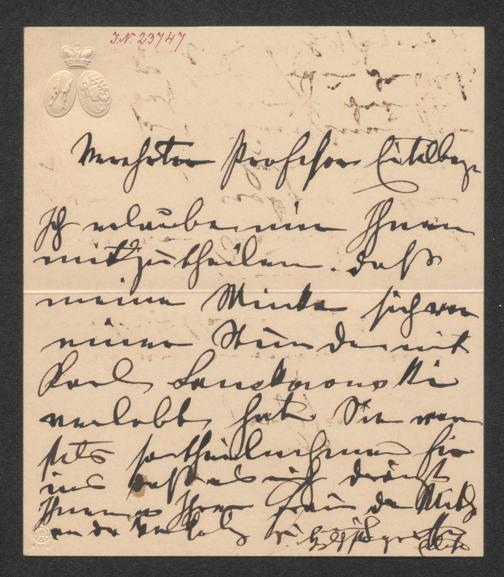 I.N. 23747
Verehrter Professor Eitelberger
Ich erlaube mir Ihnen
mitzutheilen, daß
meine Minka sich vor
einer Stunde mit
Karl Lanckoroński
verlobt hat. Sie waren
stets so theilnehmend für
uns daß es mich drängt
Ihnen u Ihrer Frau